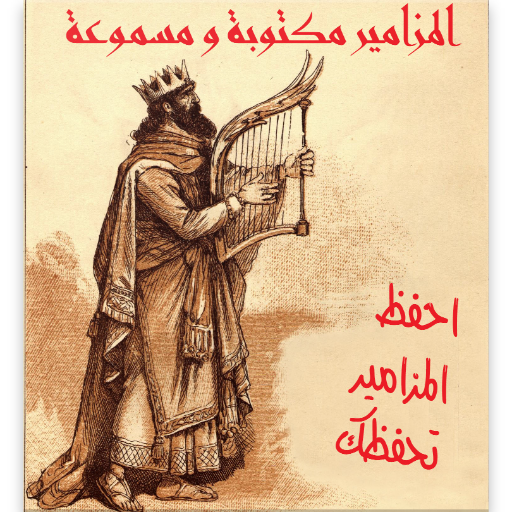 المزامير مكتوبة و مسموعة
احفظ
المزامير
تحفظك